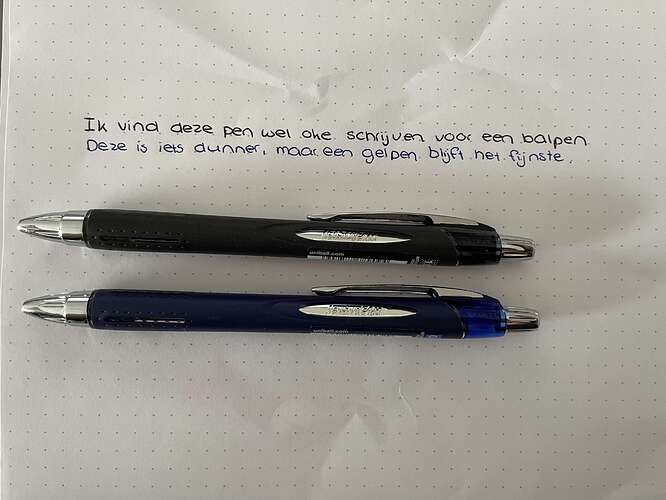 Ik vind deze pen wel oke schrijven voor een balpen.
Deze is iets dunner, maar een gelpen blijft het fijnste.
JETSTREAM
uniball.com
uniball.com